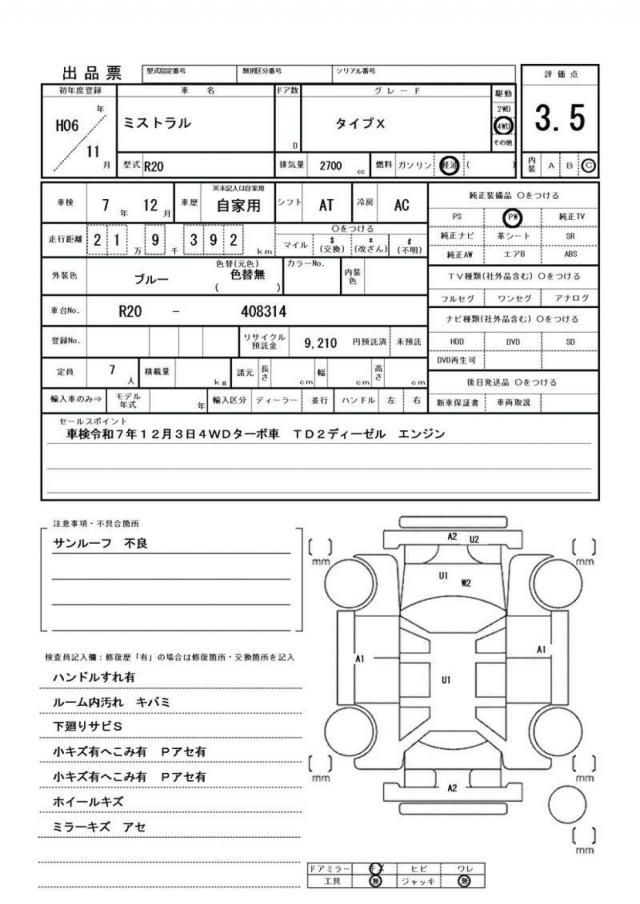 出品票 型式指定番号 類別区分番号 シリアル番号
評価点
3.5
初年度登録 車名 ドア数 グレード 駆動
H06 年 11 月
ミストラル D タイプX
2WD
4WD
その他
型式 R20 排気量 2700 cc 燃料 ガソリン 軽油 ( )
内装 A B C
車検 7年 12月 車歴 ※未記入は自家用 自家用 シフト AT 冷房 AC
走行距離 21万 9千 392 km ○をつける
マイル $(交換) *(改ざん) #(不明)
外装色 ブルー 色替(元色) 色替無 ( ) カラーNo. 内装色
車台No. R20 - 408314
登録No. リサイクル預託金 9,210 円預託済 未預託
定員 7人 積載量 kg 諸元 長さ cm 幅 cm 高さ cm
輸入車のみ⇒ モデル年式 年 輸入区分 ディーラー 並行 ハンドル 左 右
純正装備品 ○をつける
PS PW 純正TV
純正ナビ 革シート SR
純正AW エアB ABS
TV種類(社外品含む) ○をつける
フルセグ ワンセグ アナログ
ナビ種類(社外品含む) ○をつける
HDD DVD SD
DVD再生可
後日発送品 ○をつける
新車保証書 車両取説
セールスポイント
車検令和7年12月3日4WDターボ車 TD2ディーゼル エンジン
注意事項・不具合箇所
サンルーフ 不良
検査員記入欄:修復歴「有」の場合は修復箇所・交換箇所を記入
ハンドルすれ有
ルーム内汚れ キバミ
下廻りサビS
小キズ有へこみ有 Pアセ有
小キズ有へこみ有 Pアセ有
ホイールキズ
ミラーキズ アセ
A2 U2
[ ] mm
[ ] mm
U1 W2
A1
U1
A1
[ ] mm
[ ] mm
A2
[ ] mm
ドアミラー キズ ヒビ ワレ
工具 無 ジャッキ 無